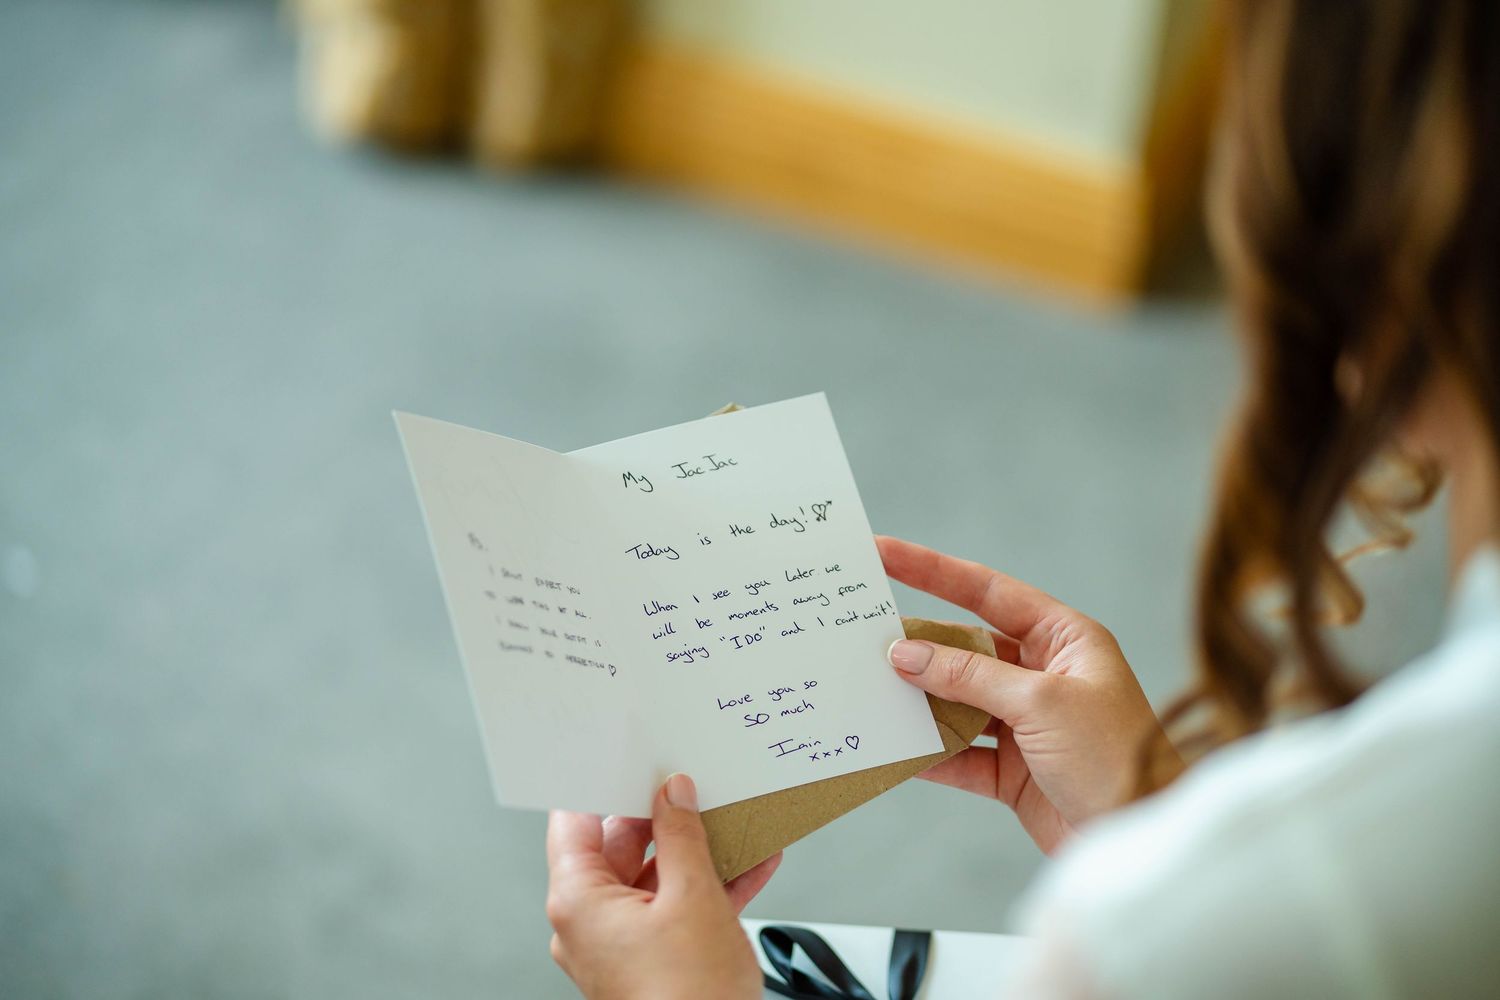 Ps.
I DON'T EXPECT YOU
TO WEAR THIS AT ALL.
I KNOW YOUR OUTFIT IS
TO PERFECTION ♡
My Jac Jac
Today is the day!
When I see you later we
will be moments away from
saying "I DO" and I can't wait!
Love you so
SO much
Iain
xxx ♡